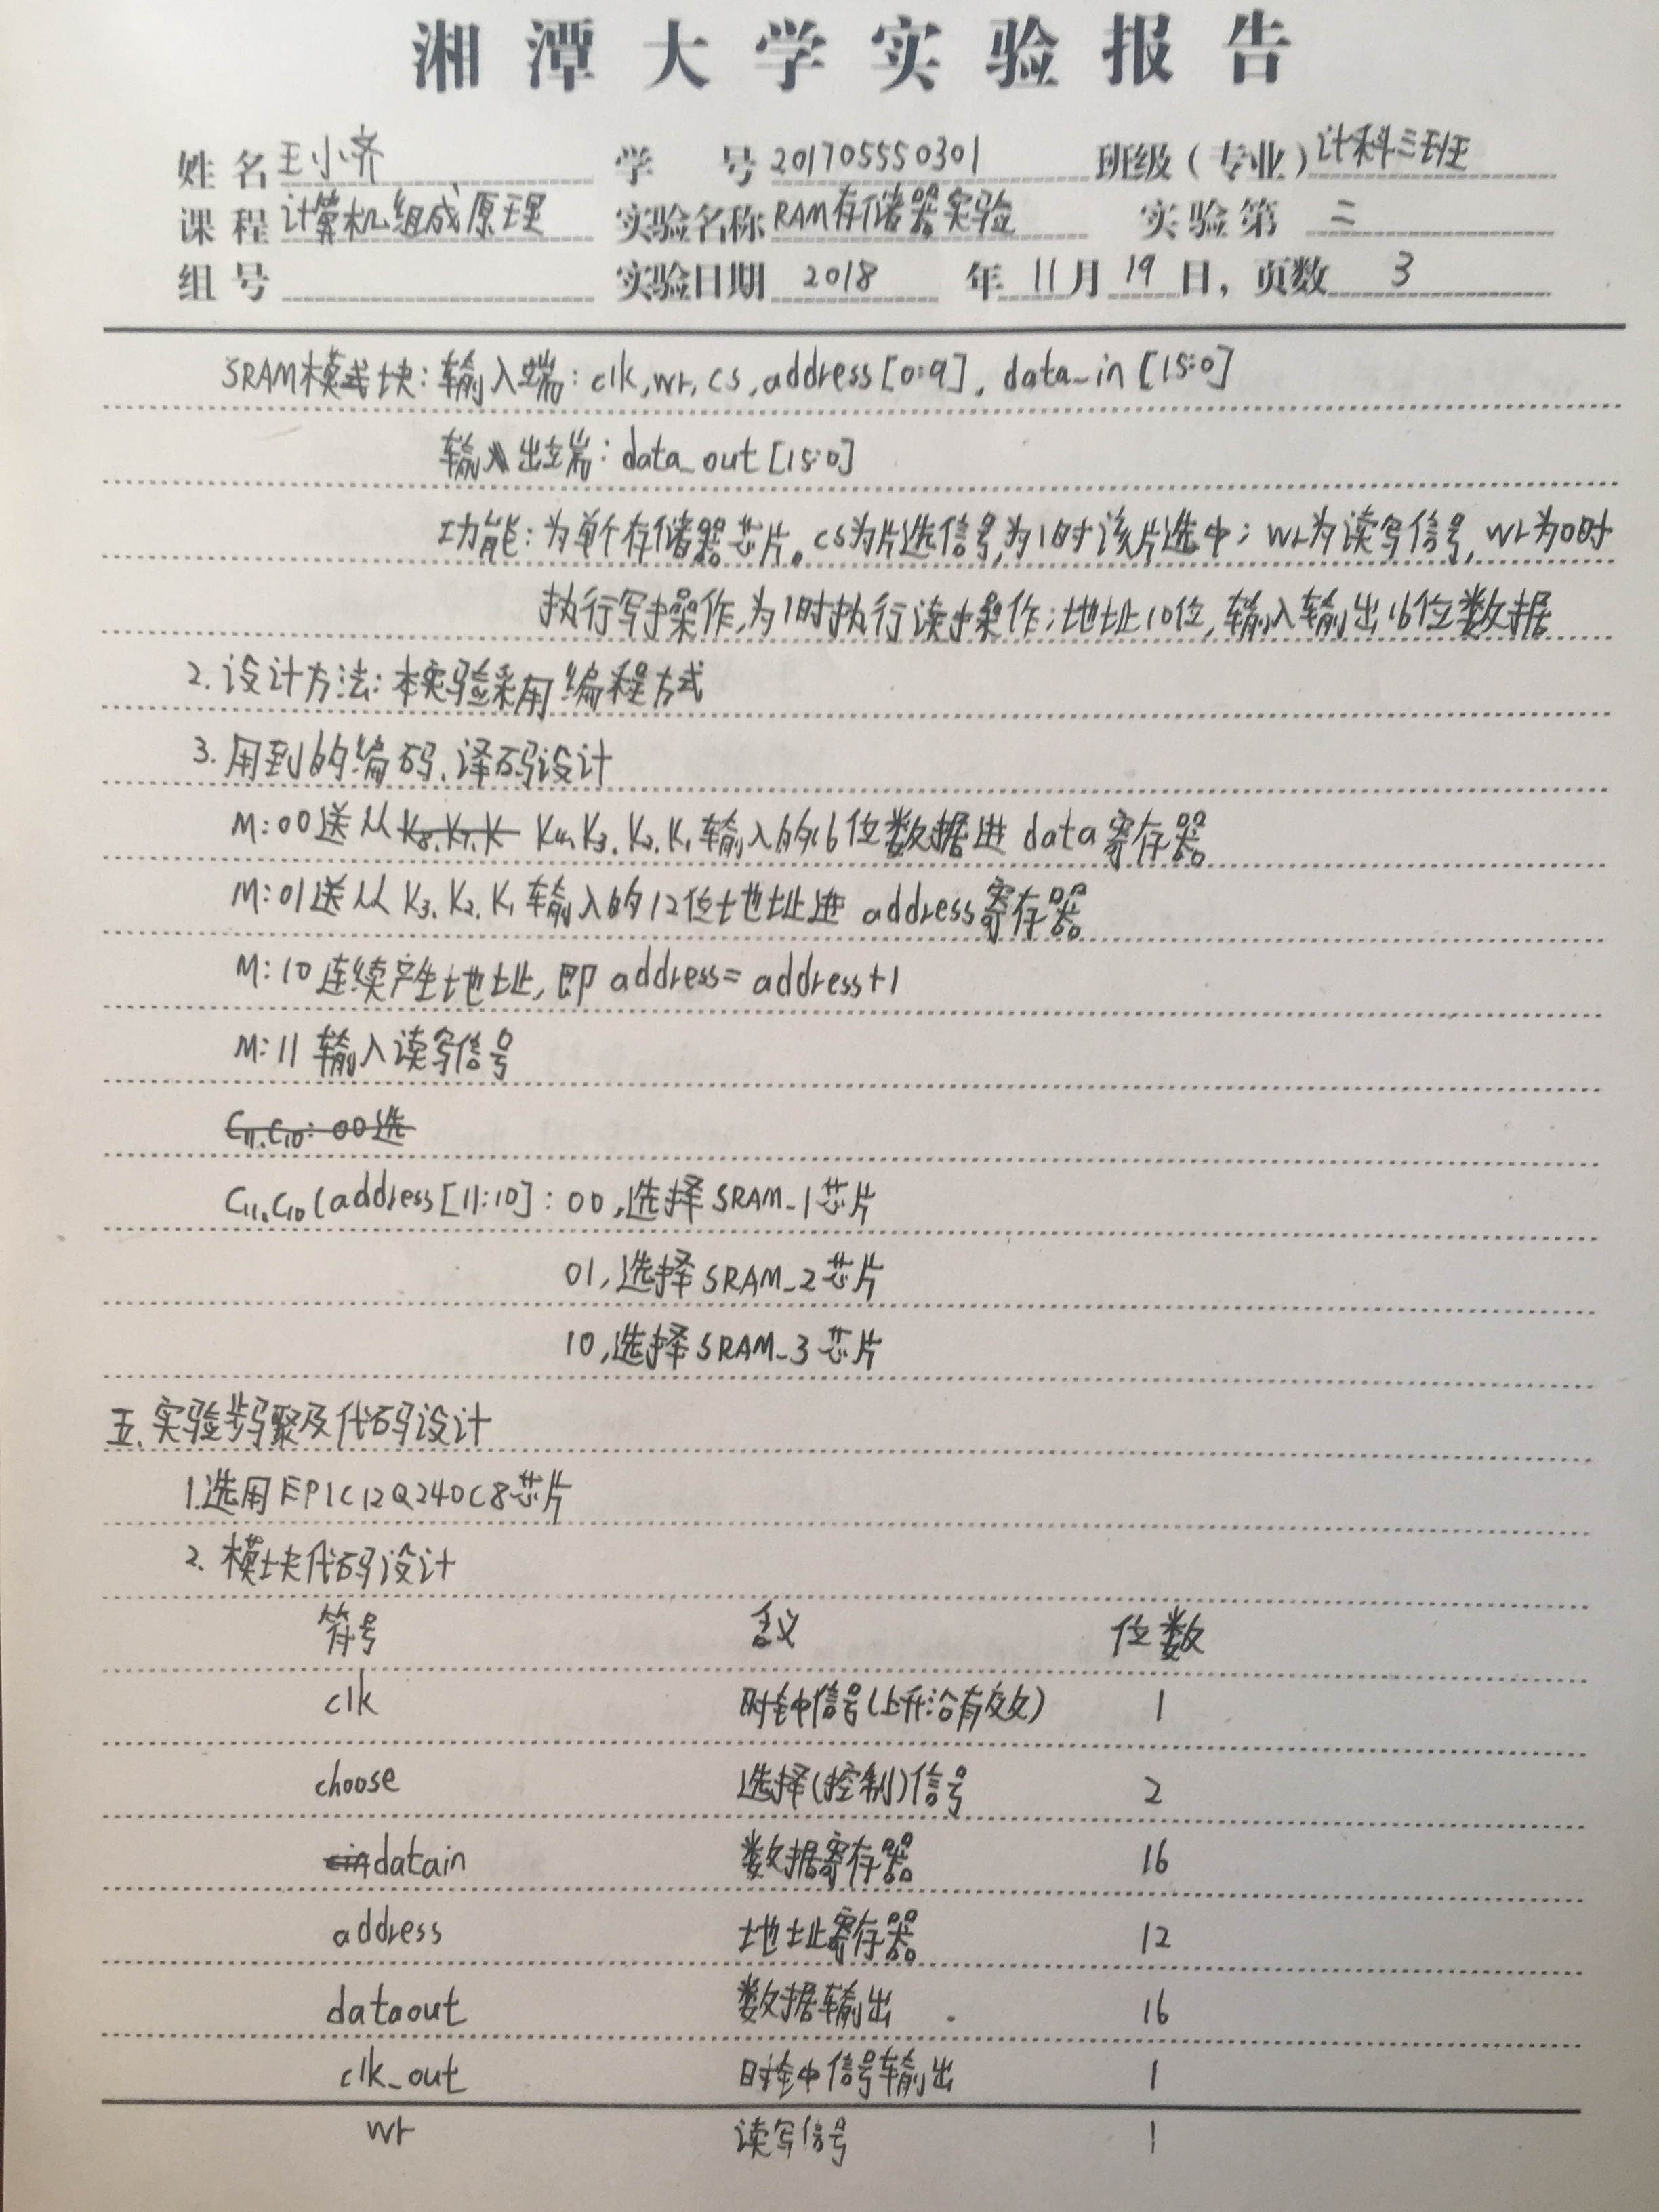 湘潭大学实验报告
姓名 王小齐 学号 201705550301 班级(专业) 计科三班
课程 计算机组成原理 实验名称 RAM存储器实验 实验第 二
组号 实验日期 2018 年 11 月 19 日, 页数 3
SRAM模块: 输入端: clk, wr, cs, address[0:9], data_in [15:0]
输出端: data_out [15:0]
功能: 为单个存储器芯片。cs为片选信号,为1时该片选中; wr为读写信号, wr为0时
执行写操作,为1时执行读操作;地址10位,输入输出16位数据
2. 设计方法: 本实验采用编程方式
3. 用到的编码、译码设计
M: 00送从 K8.K7.K K4.K3.K2.K1输入的16位数据进 data寄存器
M: 01送从 K3.K2.K1输入的12位地址进 address寄存器
M: 10连续产生地址, 即 address= address+1
M: 11 输入读写信号
C11.C10: 00选
C11.C10(address[11:10]: 00,选择SRAM_1芯片
01,选择SRAM_2芯片
10,选择SRAM_3芯片
五.实验步骤及代码设计
1.选用EP1C12Q240C8芯片
2. 模块代码设计
符号 含义 位数
clk 时钟信号(上升沿有效) 1
choose 选择(控制)信号 2
datain 数据寄存器 16
address 地址寄存器 12
dataout 数据输出 16
clk_out 时钟信号输出 1
wr 读写信号 1